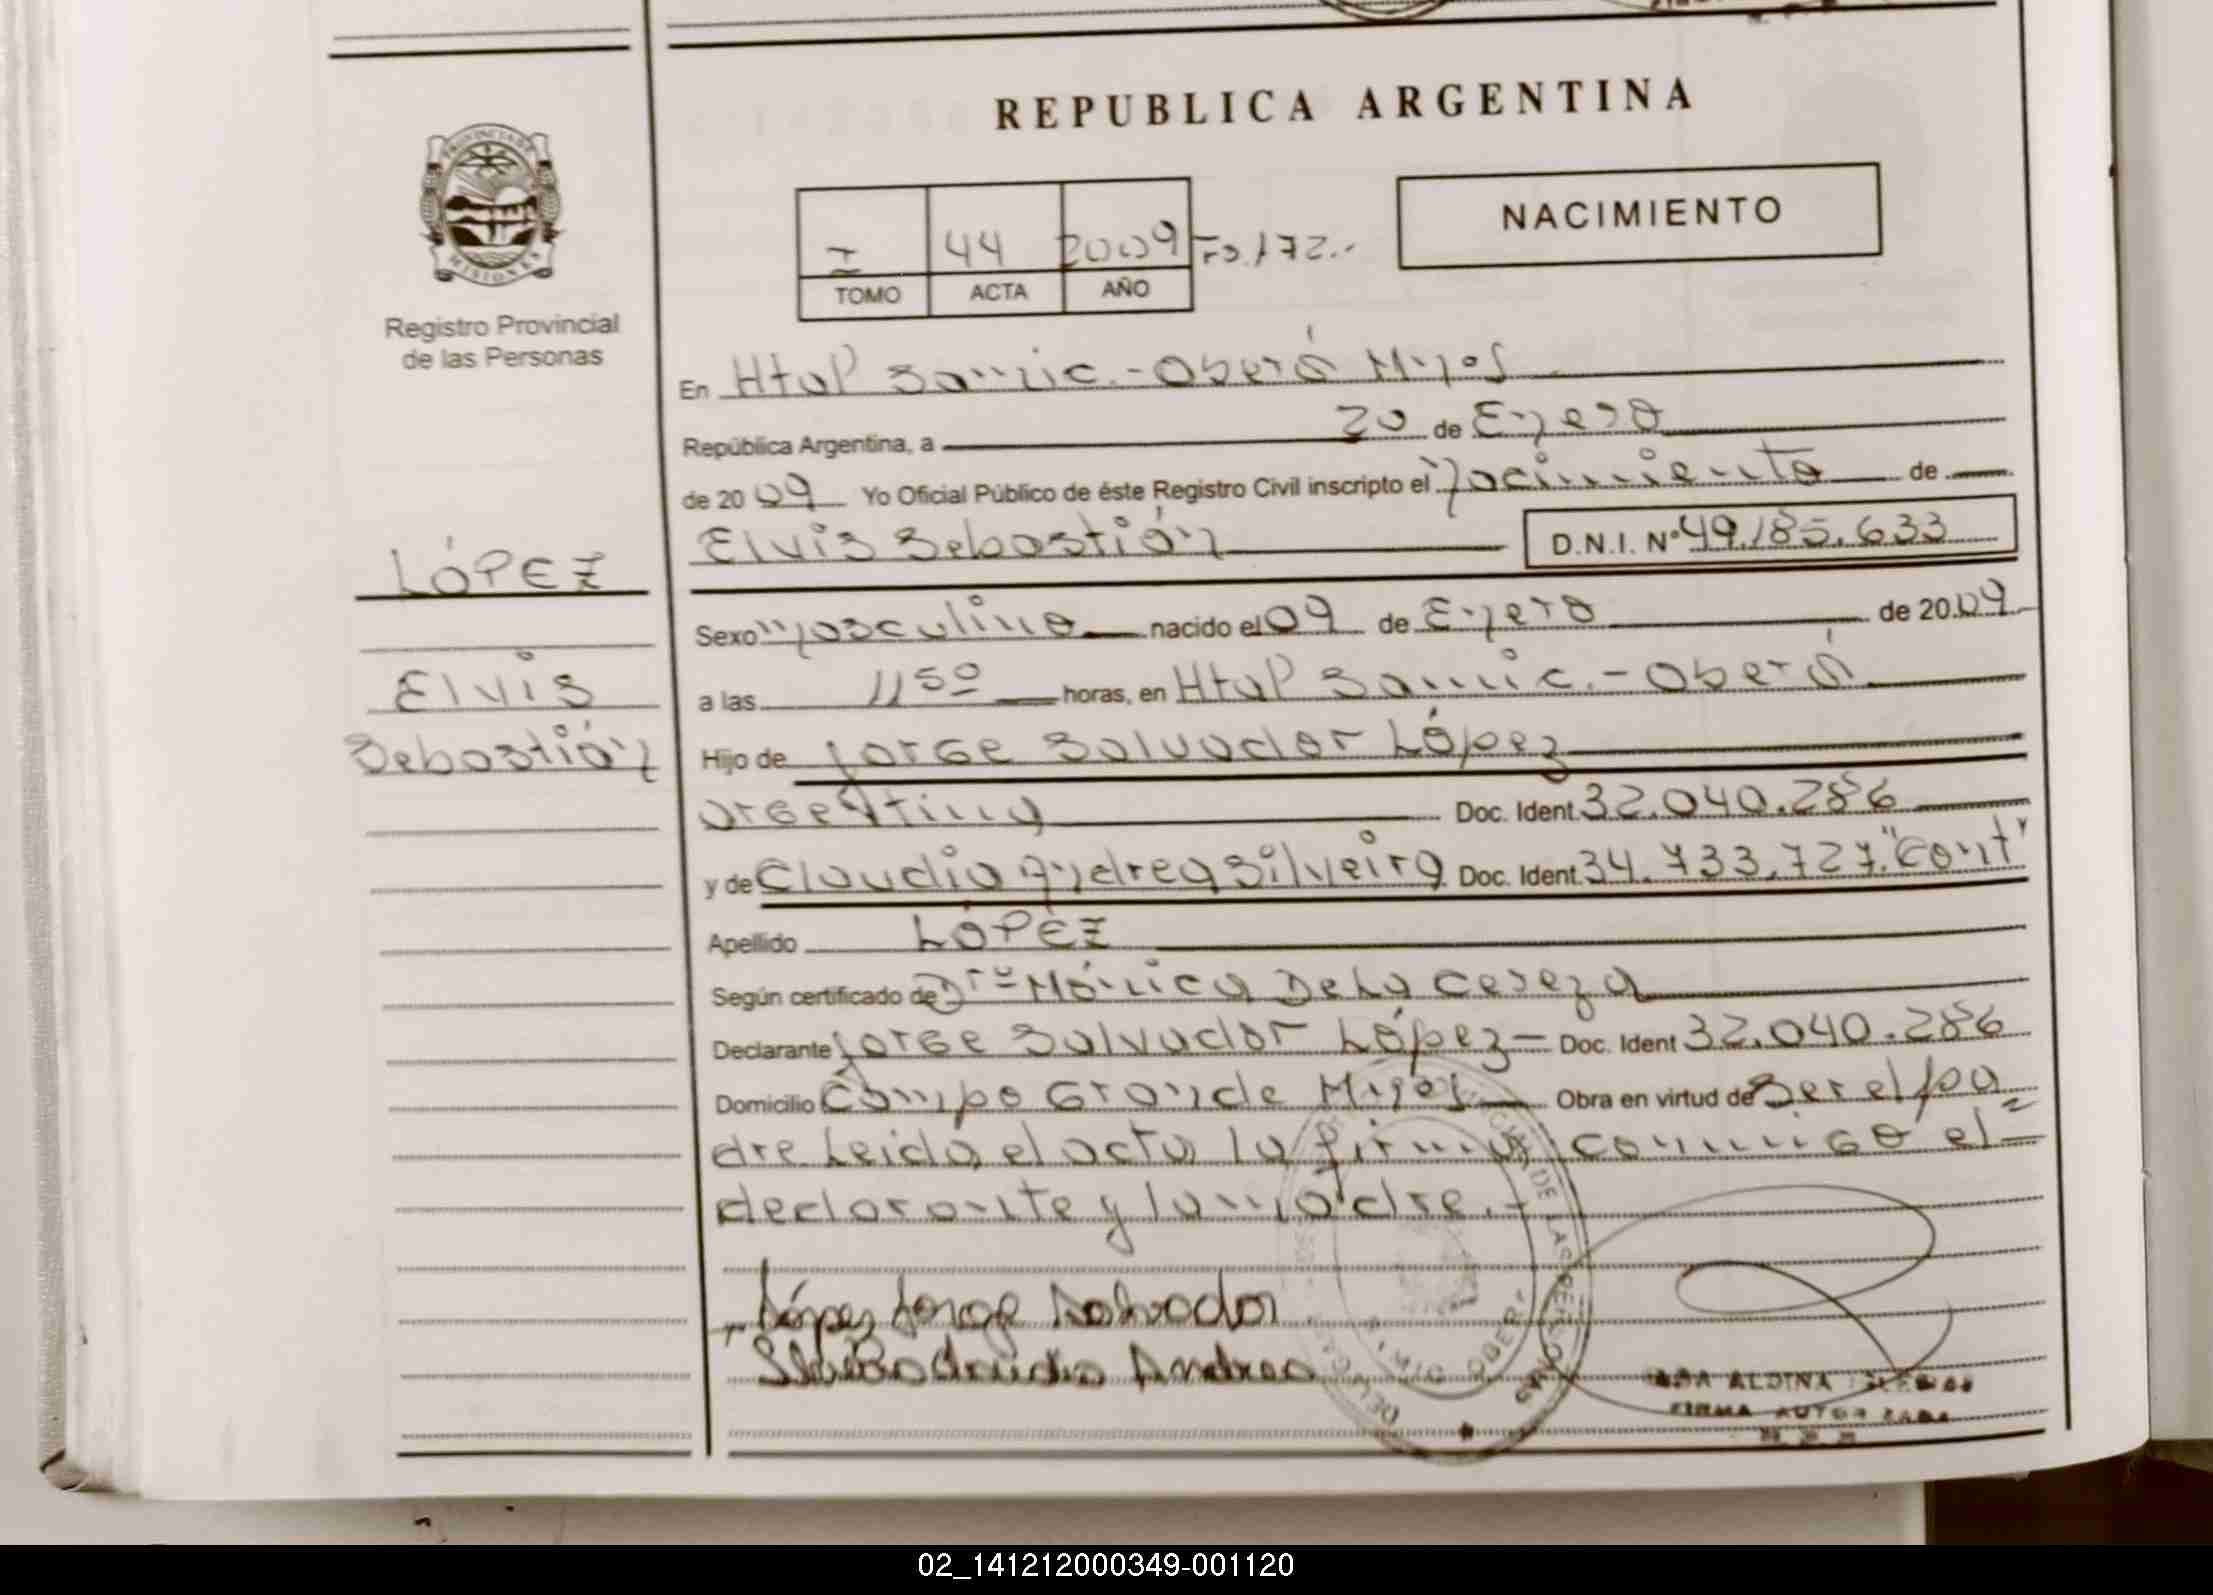 REPUBLICA ARGENTINA
PROVINCIA DE
MISIONES
Registro Provincial
de las Personas
I 44 2009 Fo.172.-
TOMO ACTA AÑO
NACIMIENTO
En Htal Samic.-Oberá Mnes
República Argentina, a 20 de Enero
de 20 09 Yo Oficial Público de éste Registro Civil inscripto el Nacimiento de
Elvis Sebastián D.N.I. Nº 49.185.633
LÓPEZ
Elvis
Sebastián
Sexo Masculino nacido el 09 de Enero de 20 09
a las 11 50 horas, en Htal Samic.-Oberá
Hijo de Jorge Salvador López
argentino Doc. Ident. 32.040.286
y de Claudia Andrea Silveira Doc. Ident. 34.733.727."Cont"
Apellido LÓPEZ
Según certificado de Drª Mónica De La
Declarante Jorge Salvador López Doc. Ident 32.040.286
Domicilio Campo Grande Mnes Obra en virtud de Ser el pa
dre Leida el acta la firma conmigo el
declarante y la madre.-
López Jorge Salvador
Silveira Claudia Andrea
DE LAS PERSONAS
ALDINA
FIRMA AUTORIZADA
02_141212000349-001120